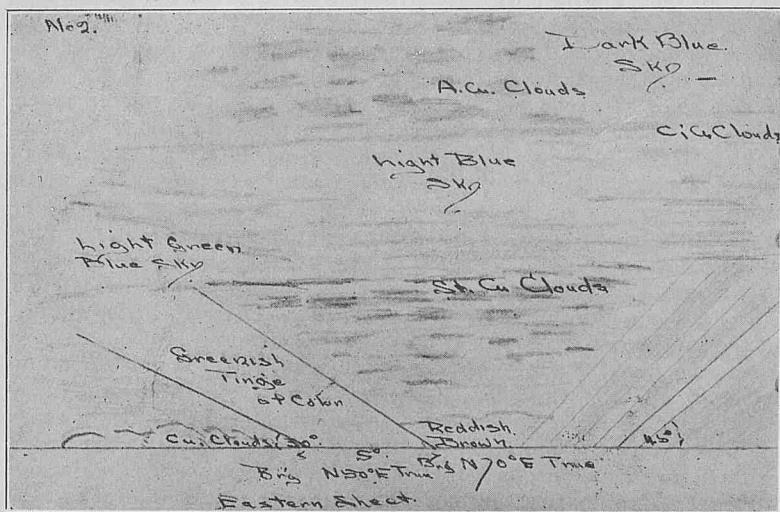 No 2.
Dark Blue
Sky
A.Cu. Clouds
Ci Cu Clouds
Light Blue
Sky
Light Green
Blue Sky
St. Cu Clouds
Greenish
Tinge
of Colour
Reddish
Brown
Cu. Clouds 30°
45°
5°
Brg N50°E True
Brg N70°E True
Eastern Sheet.